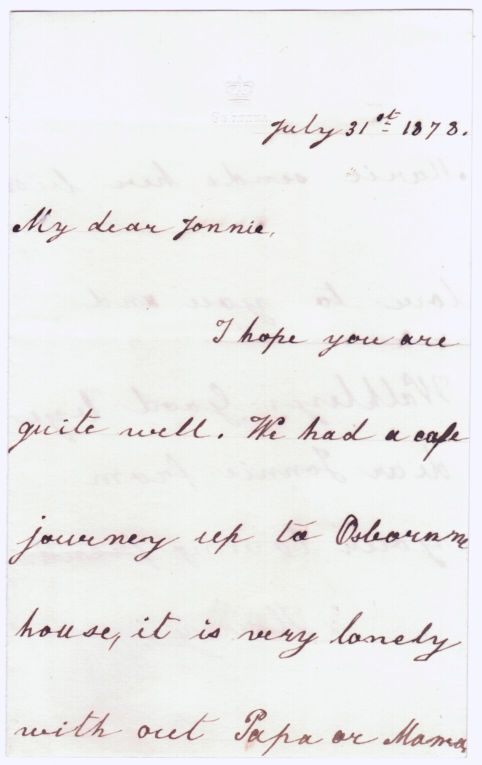 July 31st 1878.
My dear Jonnie,
I hope you are
quite well. We had a cafe
journey up to Osbornne
house, it is very lonely
with out Papa or Mama